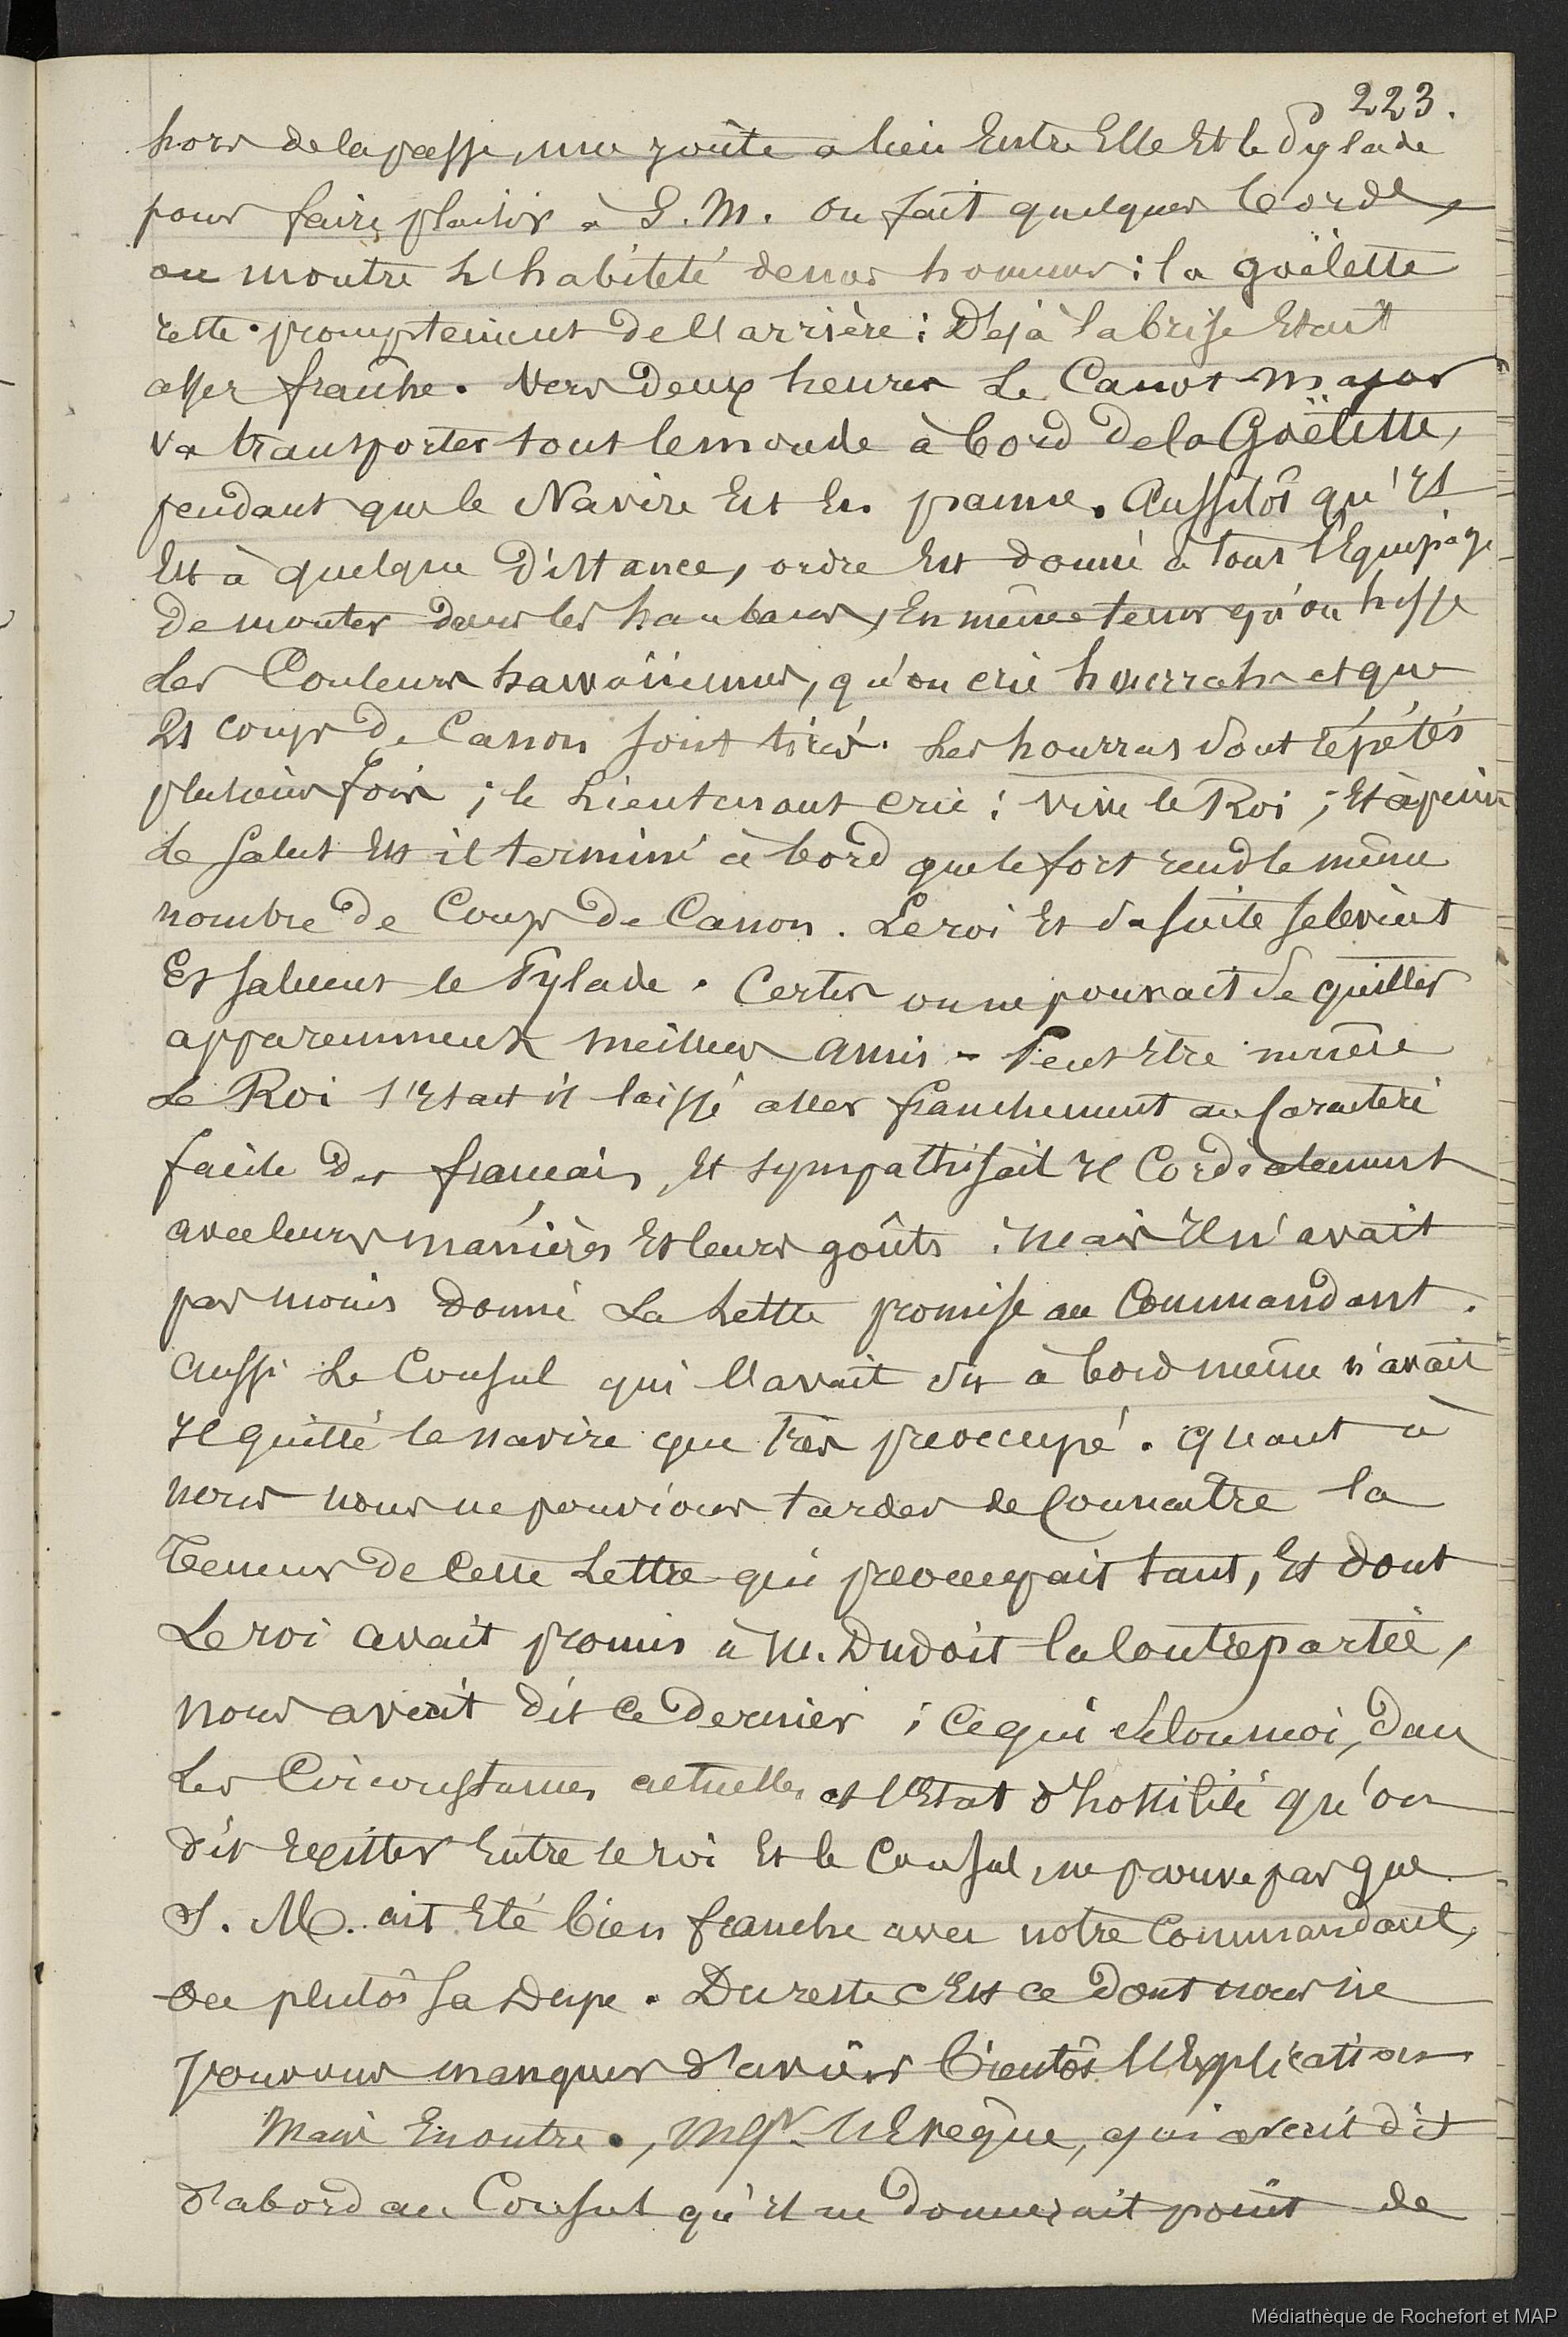 223.
hors de la passe, une joûte a lieu Entre Elle Et le Pylade
pour faire plaisir à S. M. on fait quelques bords,
on montre L'habileté de nos hommes : la goëlette
reste promptement de l'arrière : Déjà la brise Etait
assez fraîche. Vers deux heures Le Canot major
va transporter tout le monde à bord de la Goëlette,
pendant que le Navire Est En panne. Aussitôt qu'Il
Est à quelque Distance, ordre Est donné à tout l'Equipage
De monter dans les haubans, En même tems qu'on hisse
Les Couleurs hawaiiennes, qu'on crie hourrah et que
21 coups de Canon sont tirés. Les hourras sont répétés
plusieurs fois ; le Lieutenant crie : vive le Roi ; Et à peine
Le salut Est il terminé à bord que le fort rend le même
nombre de Coups de Canon. Le roi Et sa suite se lèvent
Et saluent le Pylade. Certes on ne pouvait se quitter
apparemment meilleurs amis - Peut Etre même
Le Roi s'Etait il laissé aller franchement au Caractère
facile des français, Et sympathisait Il Cordialement
avec leurs manières Et leurs goûts : mais Il n'avait
pas moins donné La Lettre promise au Commandant.
Aussi Le Consul qui l'avait su à bord même n'avait
Il quitté le navire que très préoccupé. Quant à
nous nous ne pouvions tarder de Connaître la
Teneur de Cette Lettre qui préoccupait tant, Et dont
Le roi avait promis à M. Dudoit la Contrepartie,
nous avait dit ce dernier ; Ce qui selon moi, dans
Les Circonstances actuelles et l'Etat d'hostilité qu'on
dit Exister Entre le roi Et le Consul, ne prouve pas que
S. M. ait Eté bien franche avec notre Commandant,
Ou plutôt sa Dupe. Du reste c'Est ce Dont nous ne
pouvons manquer d'avoir bientôt l'Explication
Mais En outre, Mgr. L'Evêque, qui avait dit
d'abord au Consul qu'Il ne donnerait point de
Médiathèque de Rochefort et MAP